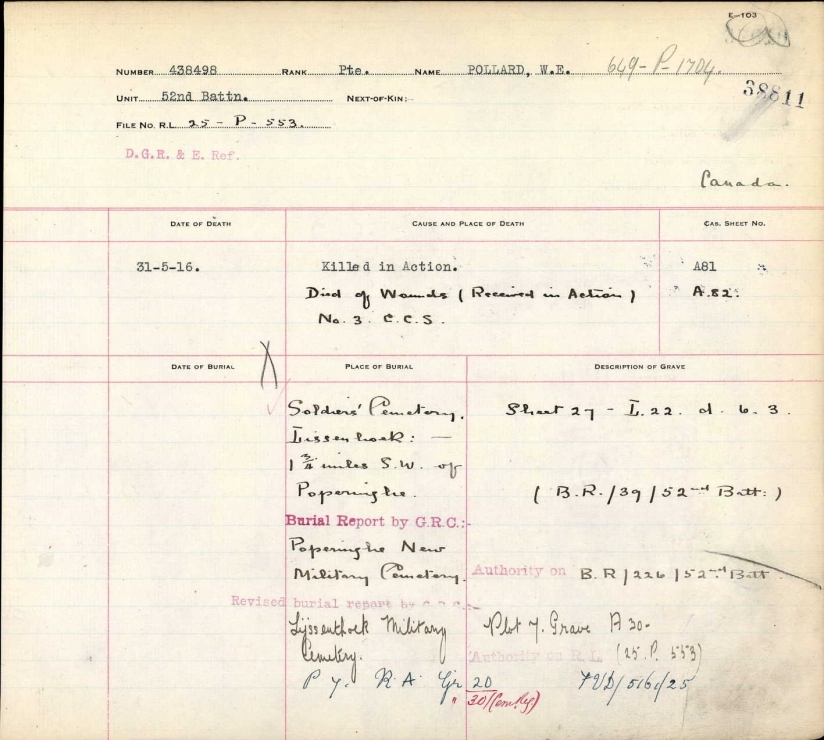 E-103
NUMBER 438498 RANK Pte. NAME POLLARD, W.E. 649-P-1704.
38811
UNIT 52nd Battn. NEXT-OF-KIN:-
FILE NO. R.L. 25 - P - 553.
D.G.R. & E. Ref.
Canada.
DATE OF DEATH CAUSE AND PLACE OF DEATH CAS. SHEET NO.
31-5-16. Killed in Action. A81
Died of Wounds (Received in Action) A.82.
No. 3. C.C.S.
DATE OF BURIAL PLACE OF BURIAL DESCRIPTION OF GRAVE
Soldiers' Cemetery, Sheet 27 - L. 22. d. 6. 3.
Lissenhoek: -
1 3/4 miles S.W. of
Poperinghe. ( B.R./39/52nd Batt: )
Burial Report by G.R.C.:-
Poperinghe New
Military Cemetery. Authority on B.R/226/52nd Batt
Revised burial report by G.R.C.:-
Lijssenthoek Military Plot 7. Grave A 20.
Cemetery. Authority on R.L. (25. P. 553)
P 7. R. A. Gr 20
" 30 (Cem. Reg)